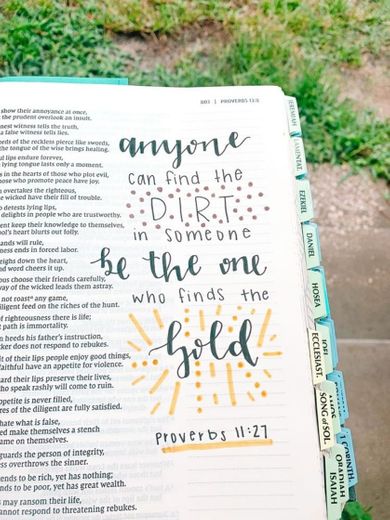 801 | PROVERBS 13:8
show their annoyance at once,
the prudent overlook an insult.
nest witness tells the truth,
a false witness tells lies.
ords of the reckless pierce like swords,
the tongue of the wise brings healing.
ul lips endure forever,
lying tongue lasts only a moment.
is in the hearts of those who plot evil,
hose who promote peace have joy.
m overtakes the righteous,
e wicked have their fill of trouble.
D detests lying lips,
delights in people who are trustworthy.
ent keep their knowledge to themselves,
ool's heart blurts out folly.
ands will rule,
iness ends in forced labor.
eighs down the heart,
nd word cheers it up.
ous choose their friends carefully,
way of the wicked leads them astray.
not roast any game,
diligent feed on the riches of the hunt.
of righteousness there is life;
t path is immortality.
n heeds his father's instruction,
cker does not respond to rebukes.
it of their lips people enjoy good things,
faithful have an appetite for violence.
ard their lips preserve their lives,
ho speak rashly will come to ruin.
ppetite is never filled,
res of the diligent are fully satisfied.
hate what is false,
ed make themselves a stench
ame on themselves.
guards the person of integrity,
ess overthrows the sinner.
ends to be rich, yet has nothing;
nds to be poor, yet has great wealth.
may ransom their life,
nnot respond to threatening rebukes.
anyone
can find the
DIRT
in someone
be the one
who finds the
Gold
Proverbs 11:27
JEREMIAH
LAMENTAT.
EZEKIEL
DANIEL
HOSEA
JOEL
ECCLESIAST.
AMOS
SONG of SOL.
1 CORINTH.
OBADIAH
ISAIAH